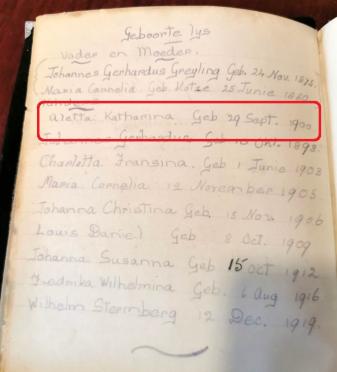 Geboorte lys
Vader en Moeder.
Johannes Gerhardus Greyling Geb. 24 Nov. 1875.
Maria Cornelia. Geb. Kotze 25 Junie
Aletta. Katharina ... Geb 29 Sept. 1900
Gerhardus Geb
Charletta Fransina. Geb 1 Junie 1903
Maria. Cornelia 12 November 1905
Johanna Christina Geb. 15 Nov. 1906
Louis Daniel Geb 8 Oct. 1909
Johanna Susanna Geb 15 Oct 1912
Fredrika Wilhelmina Geb. 6 Aug 1916
Wilhelm Sternberg 12 Dec. 1919.